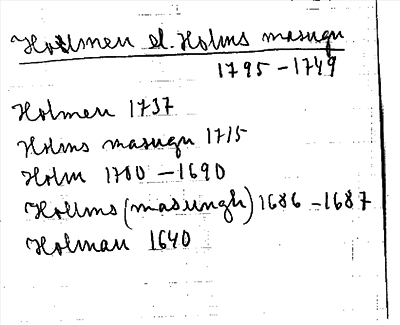 Hollmen el. Holms masugn
1795 – 1749
Holmen 1737
Holms masugn 1715
Holm 1700 – 1690
Hollms (masungh) 1686 – 1687
Holman 1640